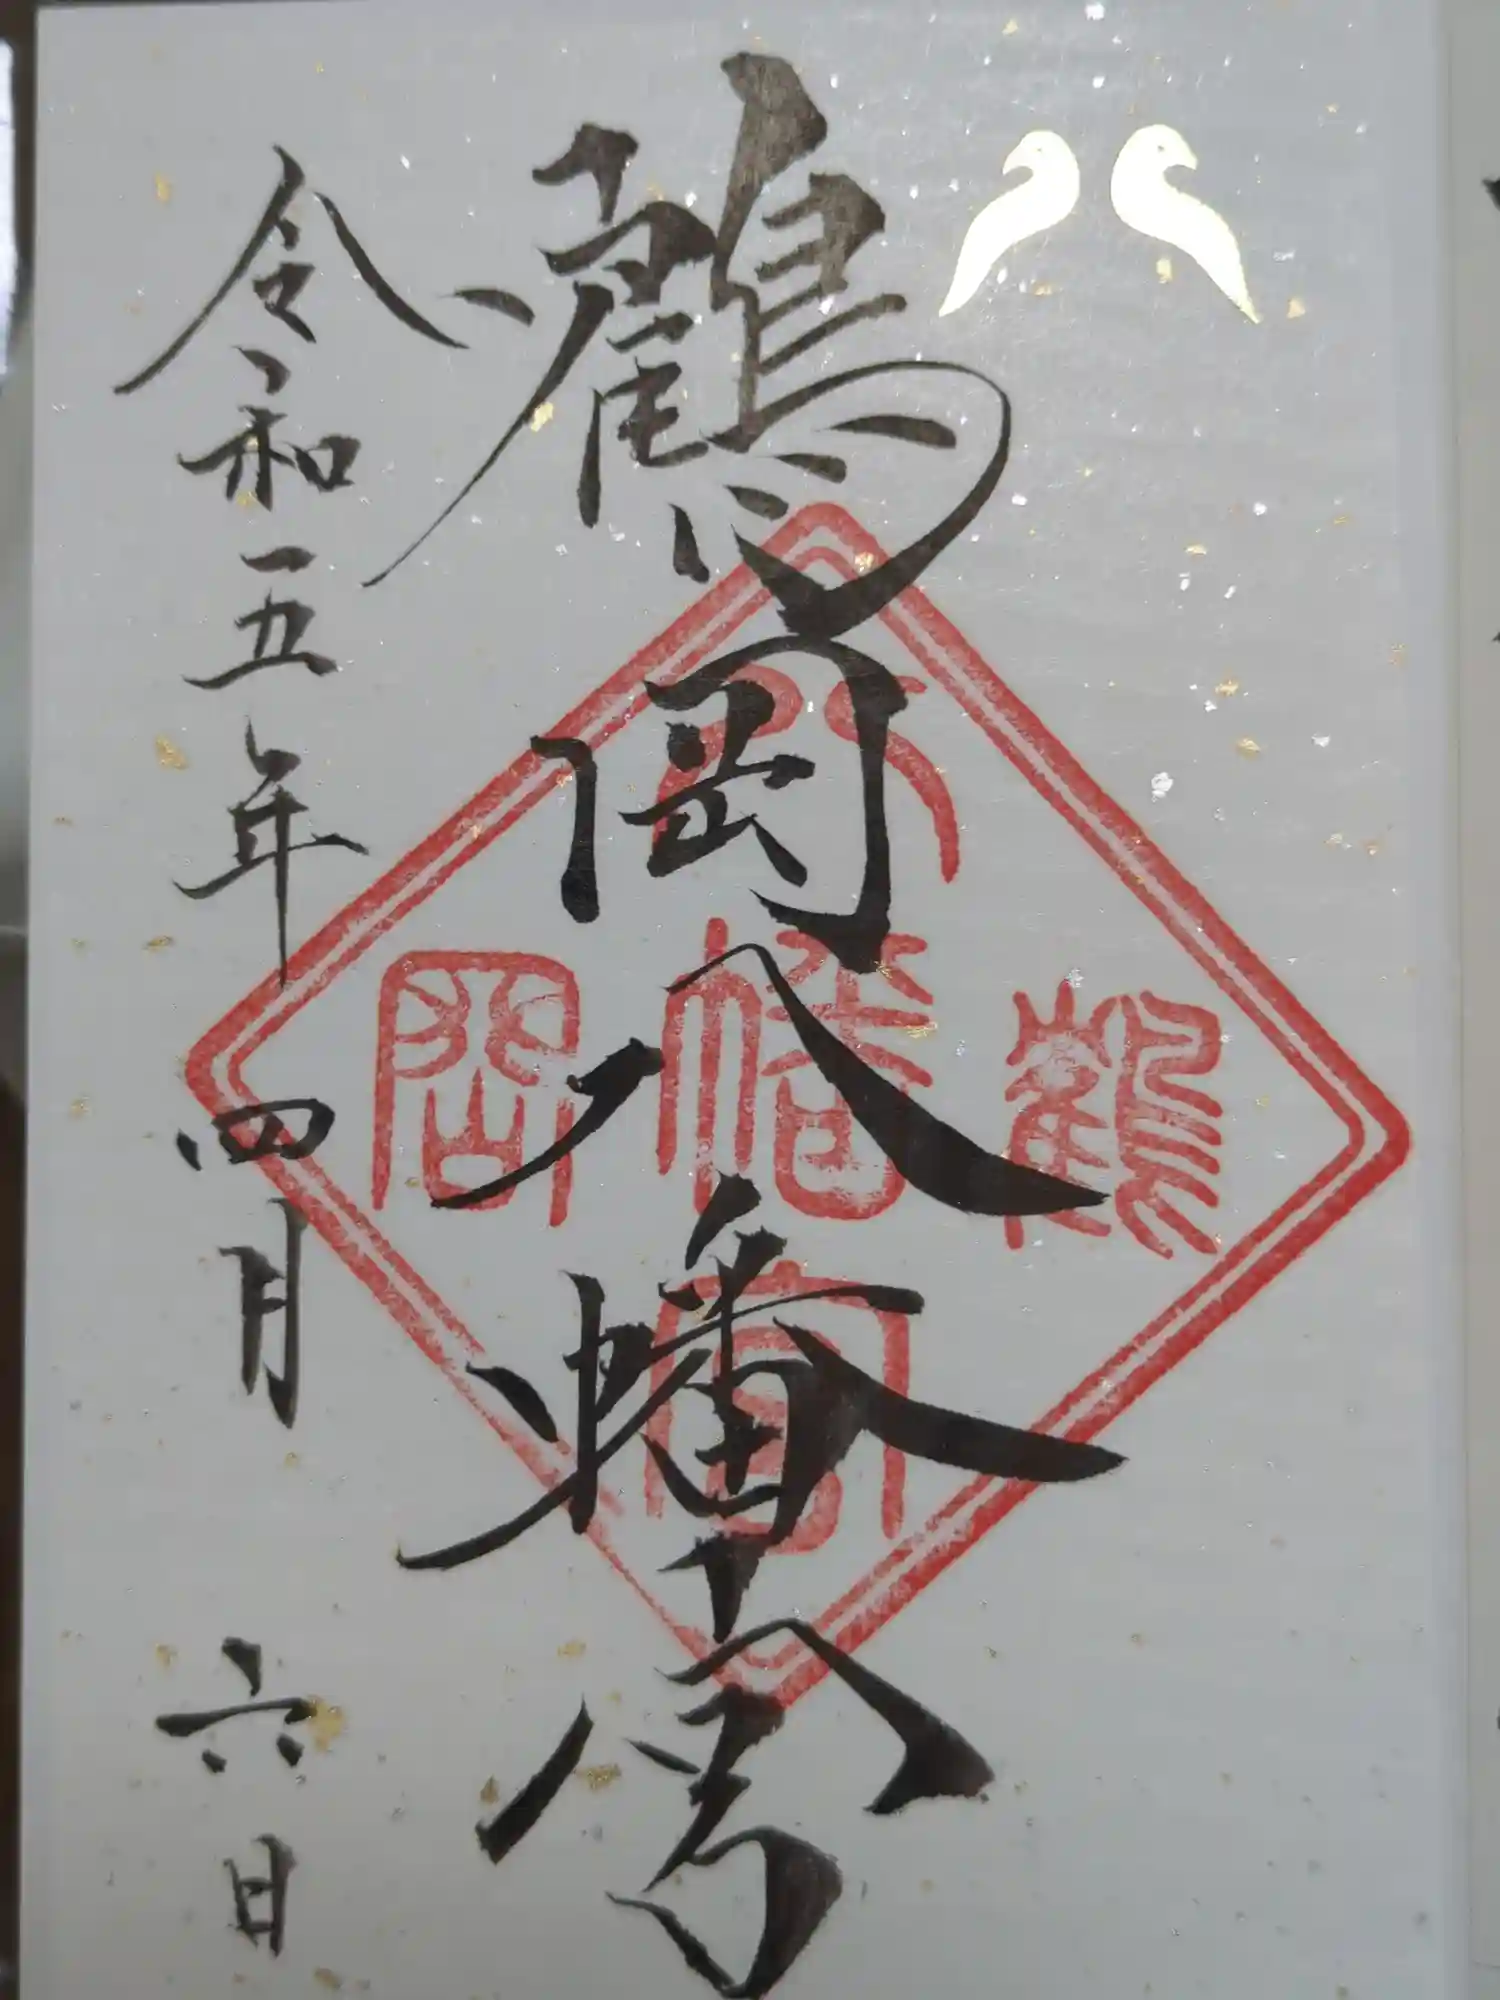 鶴岡八幡宮
八幡宮
鶴
岡
令和五年四月六日